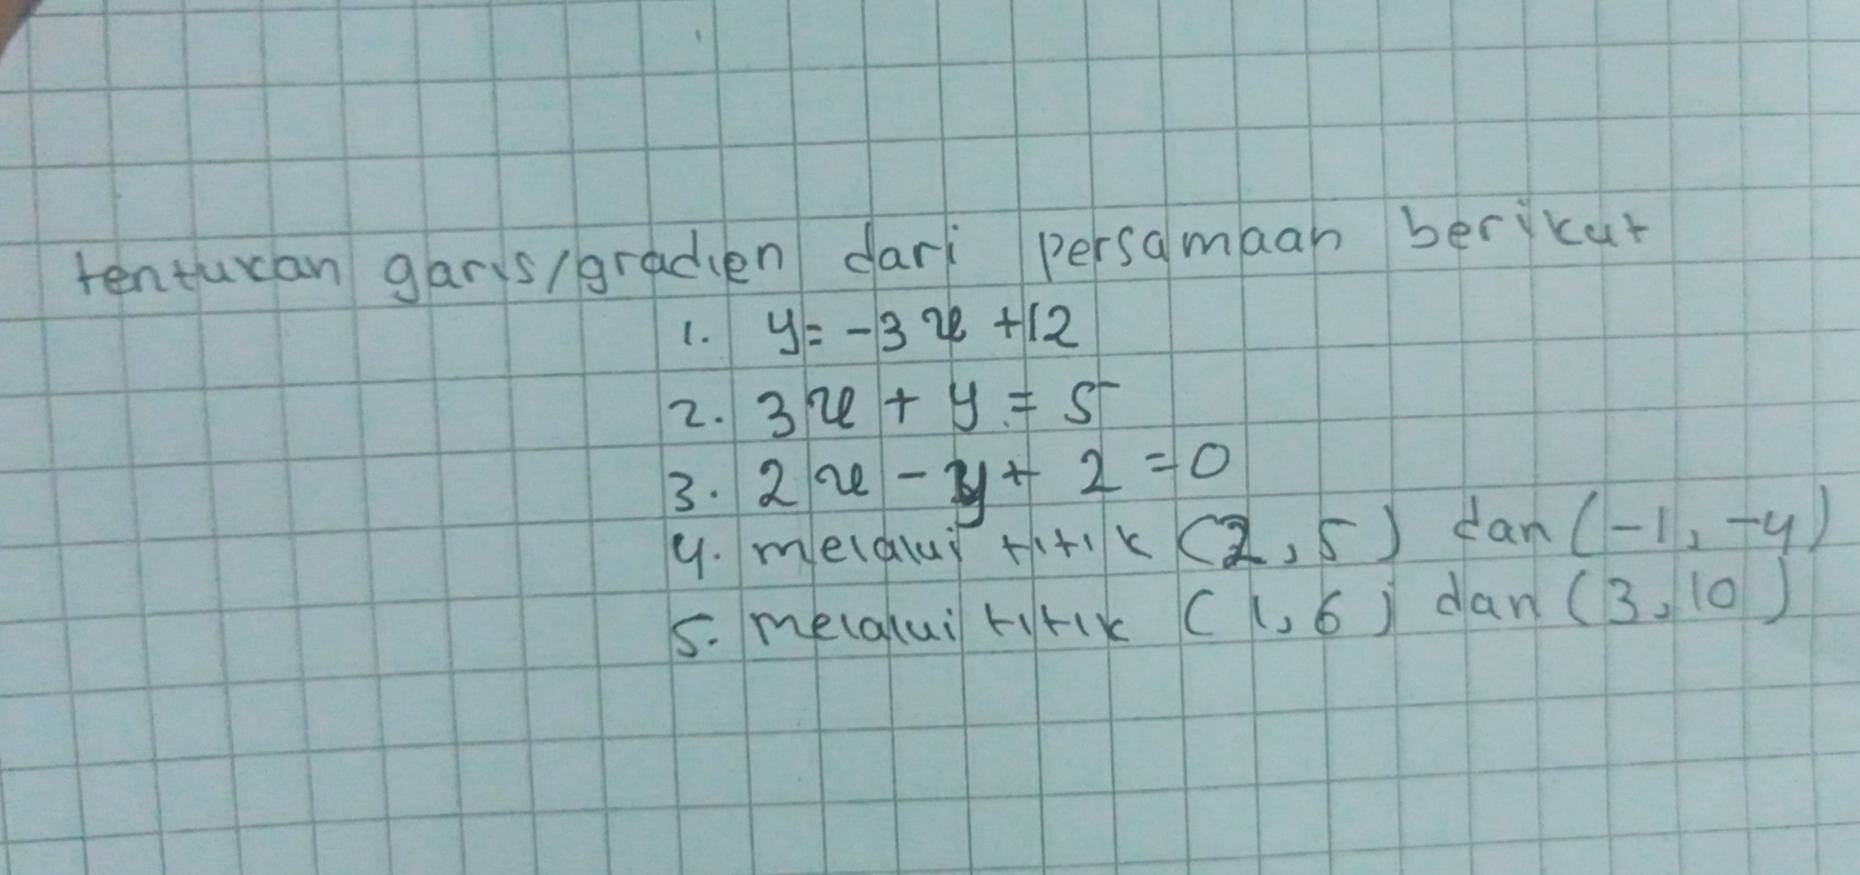 tentukan garis/gradien dari persamaan berikut
1. y = -3x + 12
2. 3x + y = 5
3. 2x - y + 2 = 0
4. melalui titik (2, 5) dan (-1, -4)
5. melalui titik (1, 6) dan (3, 10)